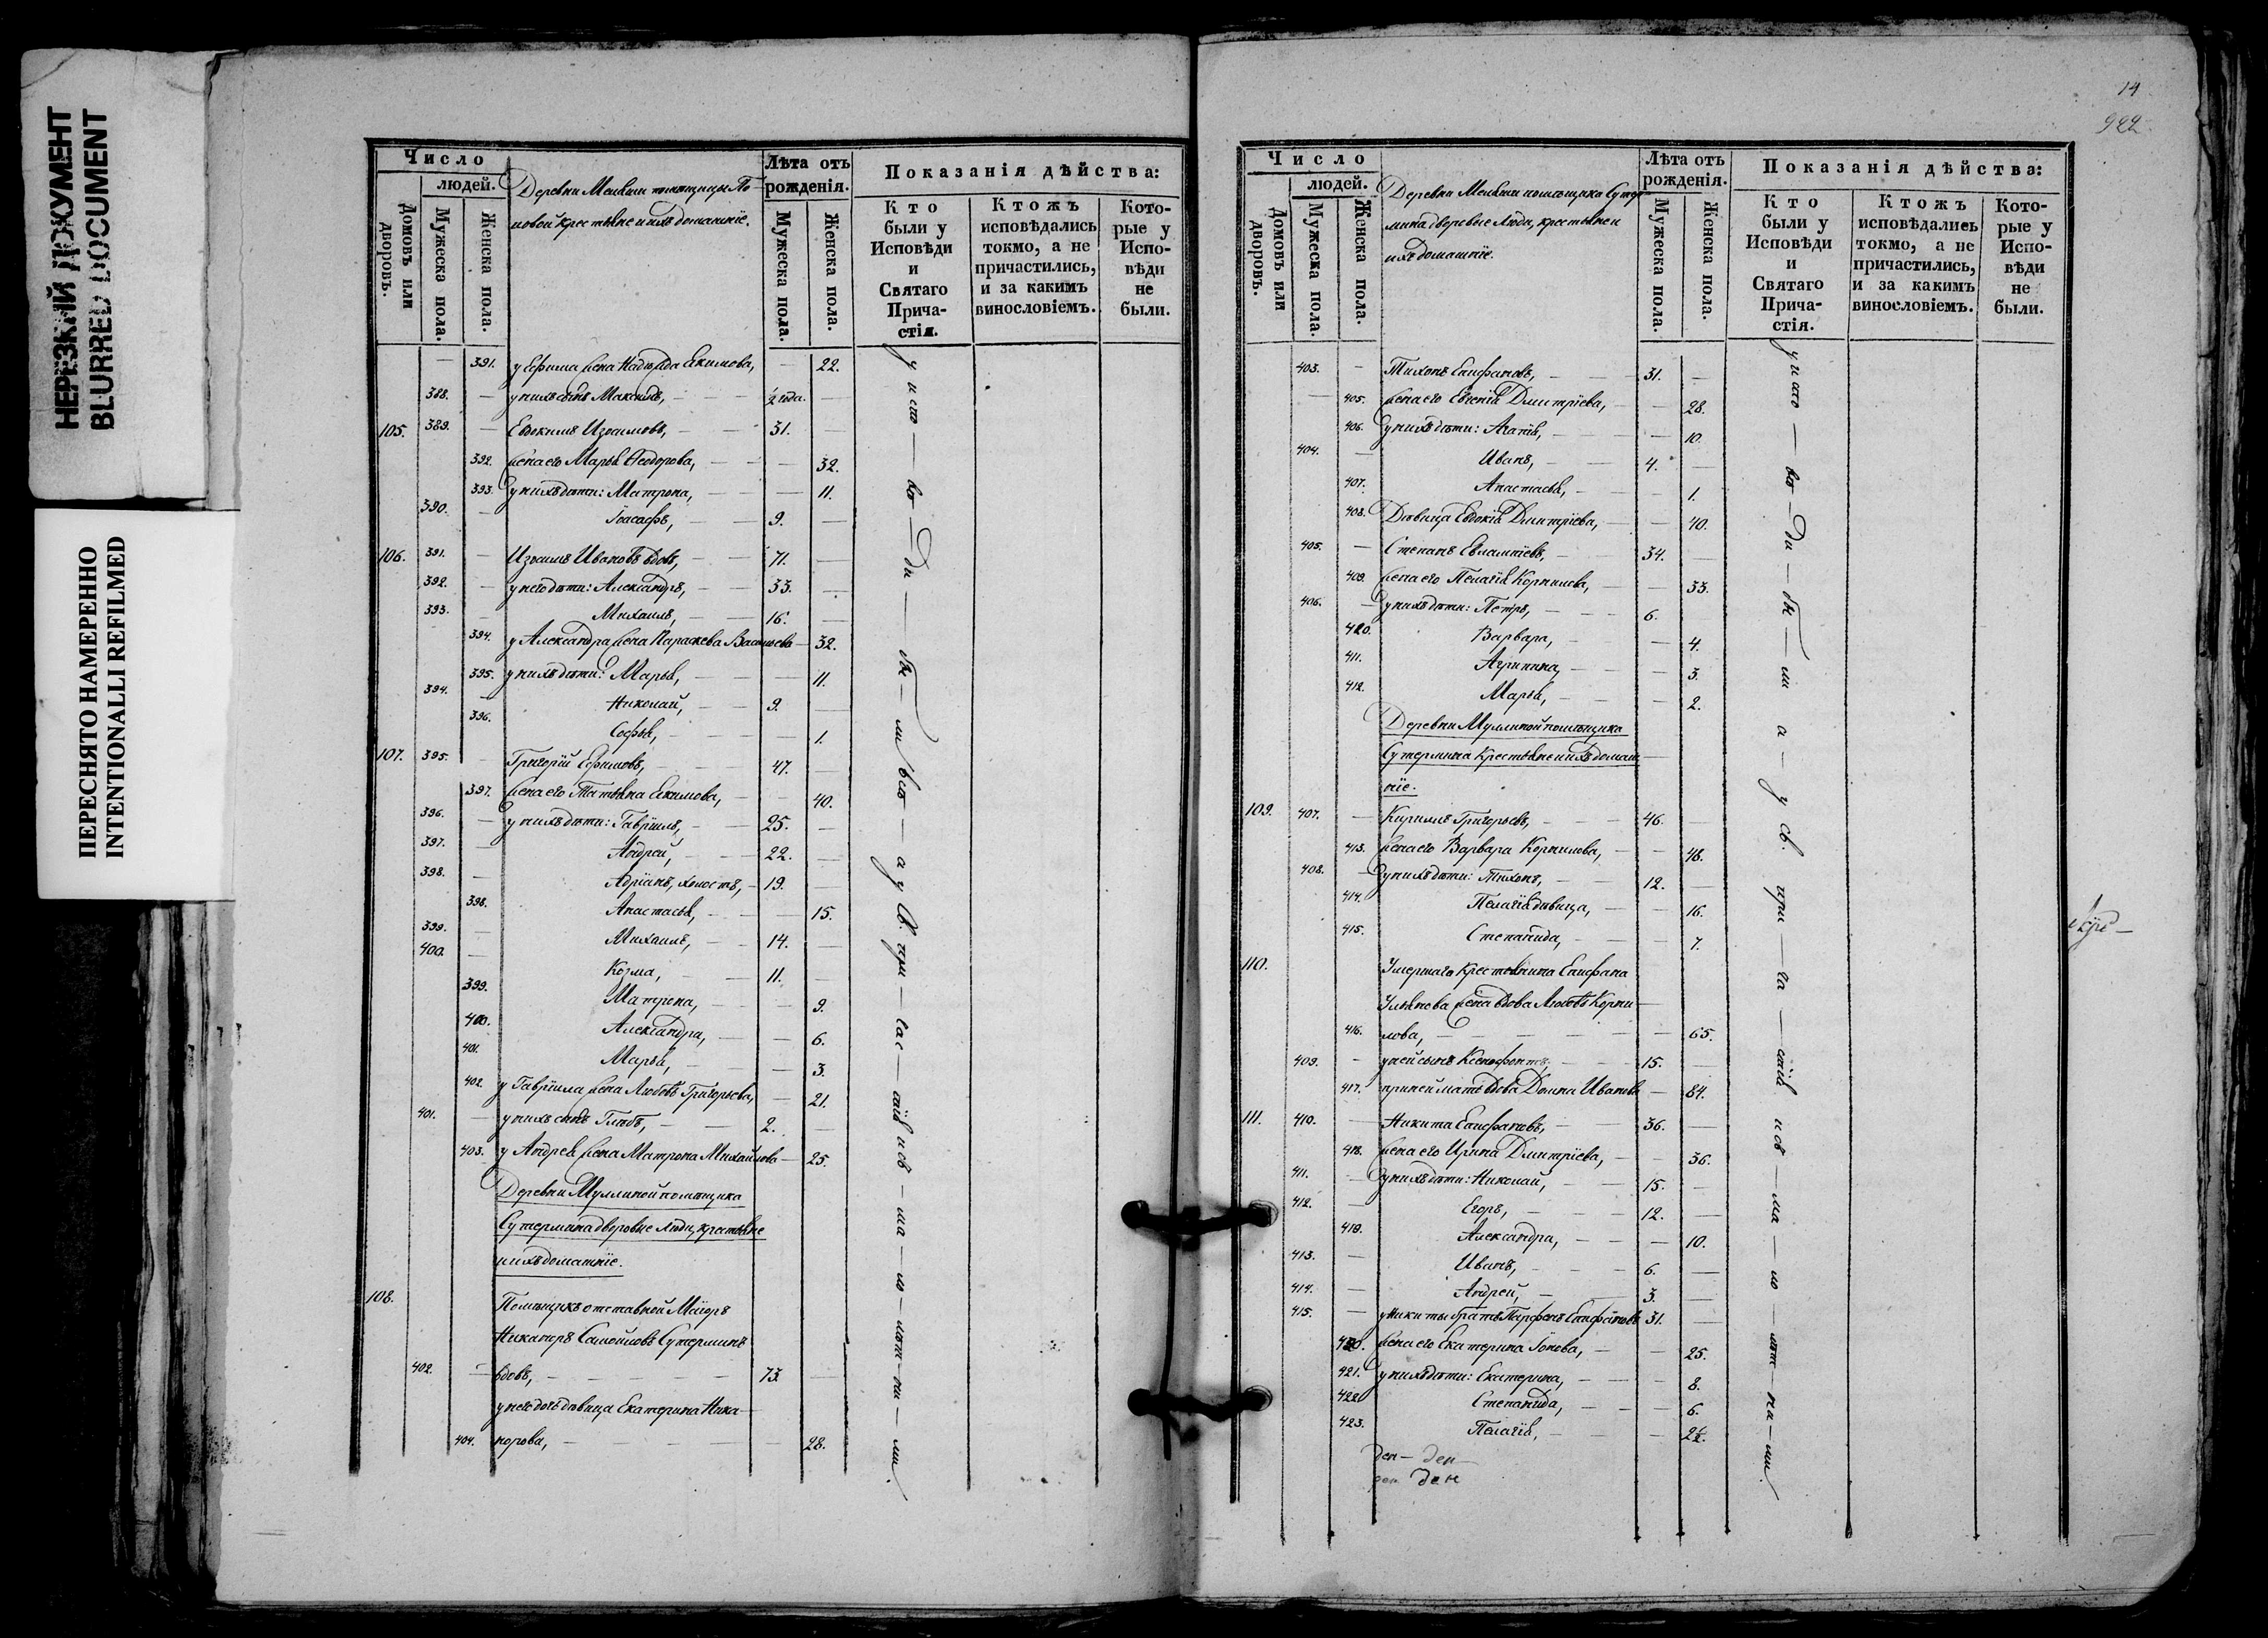 НЕРЕЗКИЙ ДОКУМЕНТ
BLURRED DOCUMENT
ПЕРЕСНЯТО НАМЕРЕННО
INTENTIONALLI REFILMED
Число
людей.
Домовъ или дворовъ.
Мужеска пола.
Женска пола.
Деревни помѣщицы По-
новой крестьяне и ихъ домашніе.
Лѣта отъ рожденія.
Мужеска пола.
Женска пола.
Показанія дѣйства:
Кто были у Исповѣди и Святаго Прича-стія.
Ктожъ исповѣдались токмо, а не причастились, и за какимъ винословіемъ.
Кото-рые у Испо-вѣди не были.
— 391. у Ефима жена Надежда Екимова, — 22.
388. — у нихъ сынъ Максимъ, — 2 года. —
105. 389. — Евдокимъ Изосимовъ, — 31. —
392. жена его Марья Ѳеодорова, — 32.
393. у нихъ дѣти: Матрона, — 11.
390. — Іоасафъ, — 9. —
106. 391. — Изосимъ Ивановъ вдовъ, — 71. —
392. — у него дѣти: Александръ, — 33. —
393. — Михаилъ, — 16. —
394. у Александра жена Параскева Васильева — 32.
395. у нихъ дѣти: Марья, — 11.
394. — Николай, — 9. —
396. Софья, — 1.
107. 395. — Григорій Ефимовъ, — 47. —
397. жена его Татьяна Екимова, — 40.
396. — у нихъ дѣти: Гавріилъ, — 25. —
397. — Андрей, — 22. —
398. — Адріанъ, холостъ, — 19. —
398. Анастасья, — 15.
399. — Михаилъ, — 14. —
400. — Козма, — 11. —
399. Матрона, — 9.
400. Александра, — 6.
401. Марья, — 3.
402. у Гавріила жена Любовь Григорьева, — 21.
401. — у нихъ сынъ Глѣбъ, — 2. —
403. у Андрея жена Матрона Михайлова — 25.
Деревни Муллиной помѣщика
Сутермина дворовые люди, крестьяне
и ихъ домашніе.
108. Помѣщикъ отставной Маіоръ
Никаноръ Самойловъ Сутерминъ
402. — вдовъ, — 73. —
у него дочь дѣвица Екатерина Ника-
404. норова, — 28.
14
922
Число
людей.
Домовъ или дворовъ.
Мужеска пола.
Женска пола.
Деревни помѣщика Сутер-
мина дворовые люди, крестьяне и
ихъ домашніе.
Лѣта отъ рожденія.
Мужеска пола.
Женска пола.
Показанія дѣйства:
Кто были у Исповѣди и Святаго Прича-стія.
Ктожъ исповѣдались токмо, а не причастились, и за какимъ винословіемъ.
Кото-рые у Испо-вѣди не были.
403. — Тихонъ Епифановъ, — 31. —
— 405. жена его Евгенія Дмитріева, — 28.
406. у нихъ дѣти: Агапія, — 10.
404. — Иванъ, — 4. —
407. Анастасья, — 1.
408. Дѣвица Евдокія Дмитріева, — 40.
405. — Степанъ Евлампіевъ, — 34. —
409. жена его Пелагія Корнилова, — 33.
406. — у нихъ дѣти: Петръ, — 6. —
420. Варвара, — 4.
411. Агрипина, — 3.
412. Марья, — 2.
Деревни Муллиной помѣщика
Сутермина крестьяне и ихъ домаш-
ніе.
109. 407. — Кирилъ Григорьевъ, — 46. —
413. жена его Варвара Корнилова, — 48.
408. — у нихъ дѣти: Тихонъ, — 12. —
414. Пелагія дѣвица, — 16.
415. Степанида, — 7.
110. Умершаго крестьянина Епифана
Ульянова жена вдова Любовь Корни-
416. лова, — 65.
409. — у ней сынъ Ксенофонтъ, — 15. —
417. при ней мать вдова Домна Иванова — 84.
111. 410. — Никита Епифановъ, — 36. —
418. жена его Ирина Дмитріева, — 36.
411. — у нихъ дѣти: Николай, — 15. —
412. — Егоръ, — 12. —
419. Александра, — 10.
413. — Иванъ, — 6. —
414. — Андрей, — 3. —
415. — у Никиты братъ Парфенъ Епифановъ 31. —
420. жена его Екатерина Іонова, — 25.
421. у нихъ дѣти: Екатерина, — 8.
422. Степанида, — 6.
423. Пелагія, —
ден — ден
ден ден